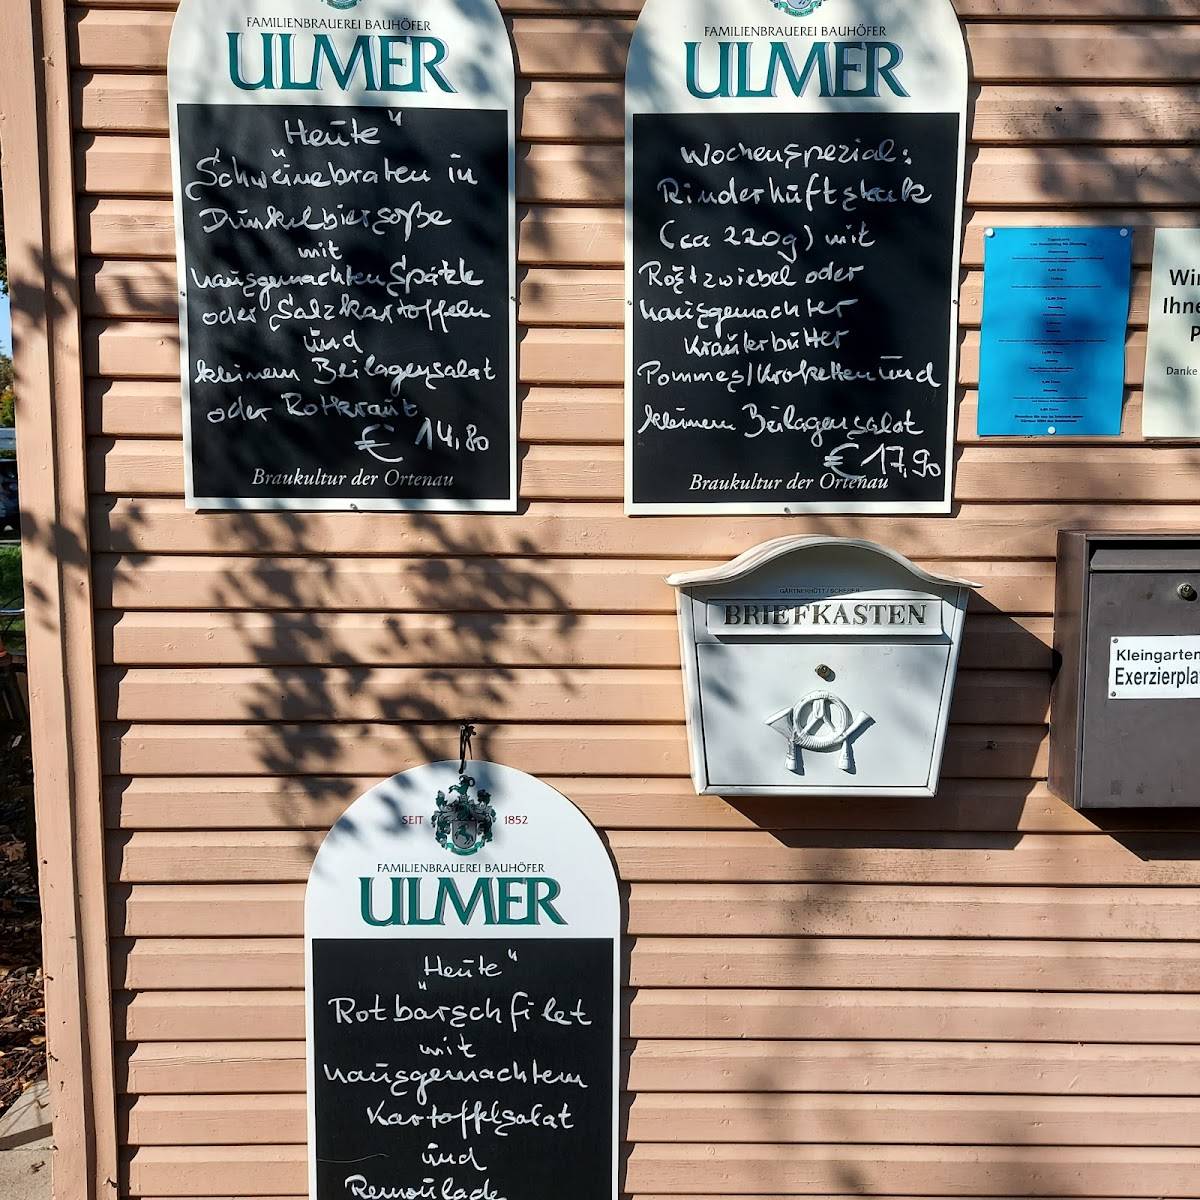 FAMILIENBRAUEREI BAUHÖFER
ULMER
„Heute“
Schweinebraten in
Dunkelbiersoße
mit
hausgemachten Spätzle
oder Salzkartoffeln
und
kleinem Beilagensalat
oder Rotkraut
€ 14,80
Braukultur der Ortenau
FAMILIENBRAUEREI BAUHÖFER
ULMER
Wochenspezial:
Rinderhüftsteak
(ca 220g) mit
Röstzwiebel oder
hausgemachter
Kräuterbutter
Pommes/Kroketten und
kleinem Beilagensalat
€ 17,90
Braukultur der Ortenau
Wir
Ihne
P
Danke
BRIEFKASTEN
Kleingarten
Exerzierpla
SEIT 1852
FAMILIENBRAUEREI BAUHÖFER
ULMER
„Heute“
Rotbarschfilet
mit
hausgemachtem
Kartoffelsalat
und
Remoulade